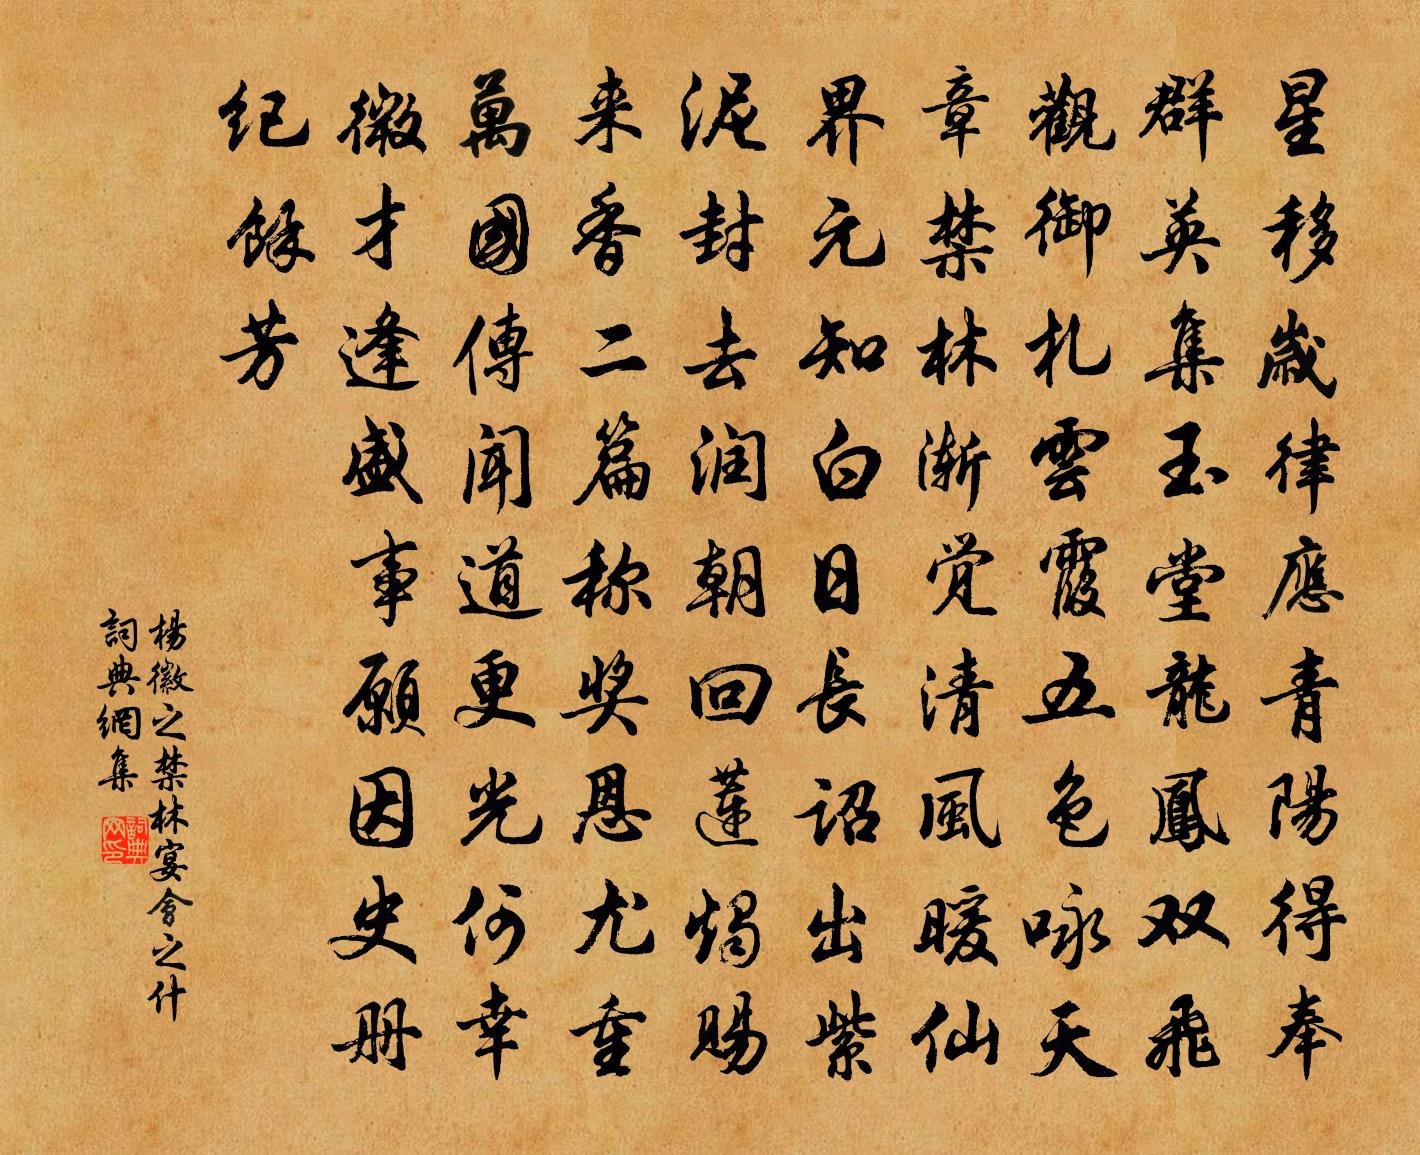 星移歲律應青陽得奉
群英集玉堂龍鳳双飛
觀御札雲霞五色咏天
章禁林渐觉清風暖仙
界元知白日長詔出紫
泥封去润朝回蓮燭賜
来香二篇称奖恩尤重
萬國傳聞道更光何幸
微才逢盛事願因史册
纪餘芳
楊徽之禁林宴會之什
詞典網集
詞典
网印